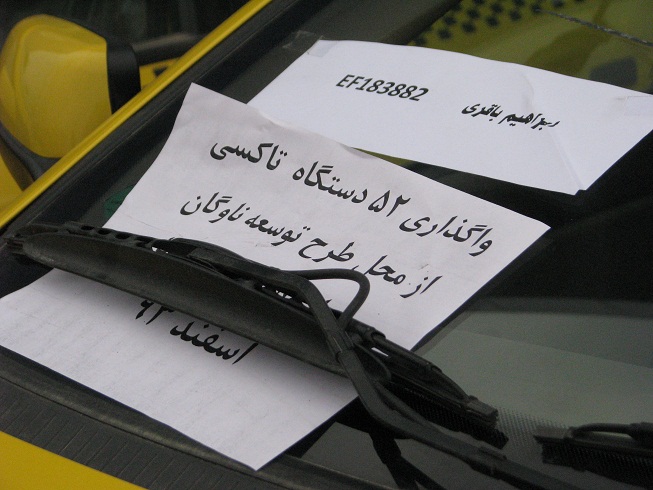 EF183882
باقری
واگذاری ۵۲ دستگاه تاکسی
از محل طرح توسعه ناوگان
اسفند ۹۲